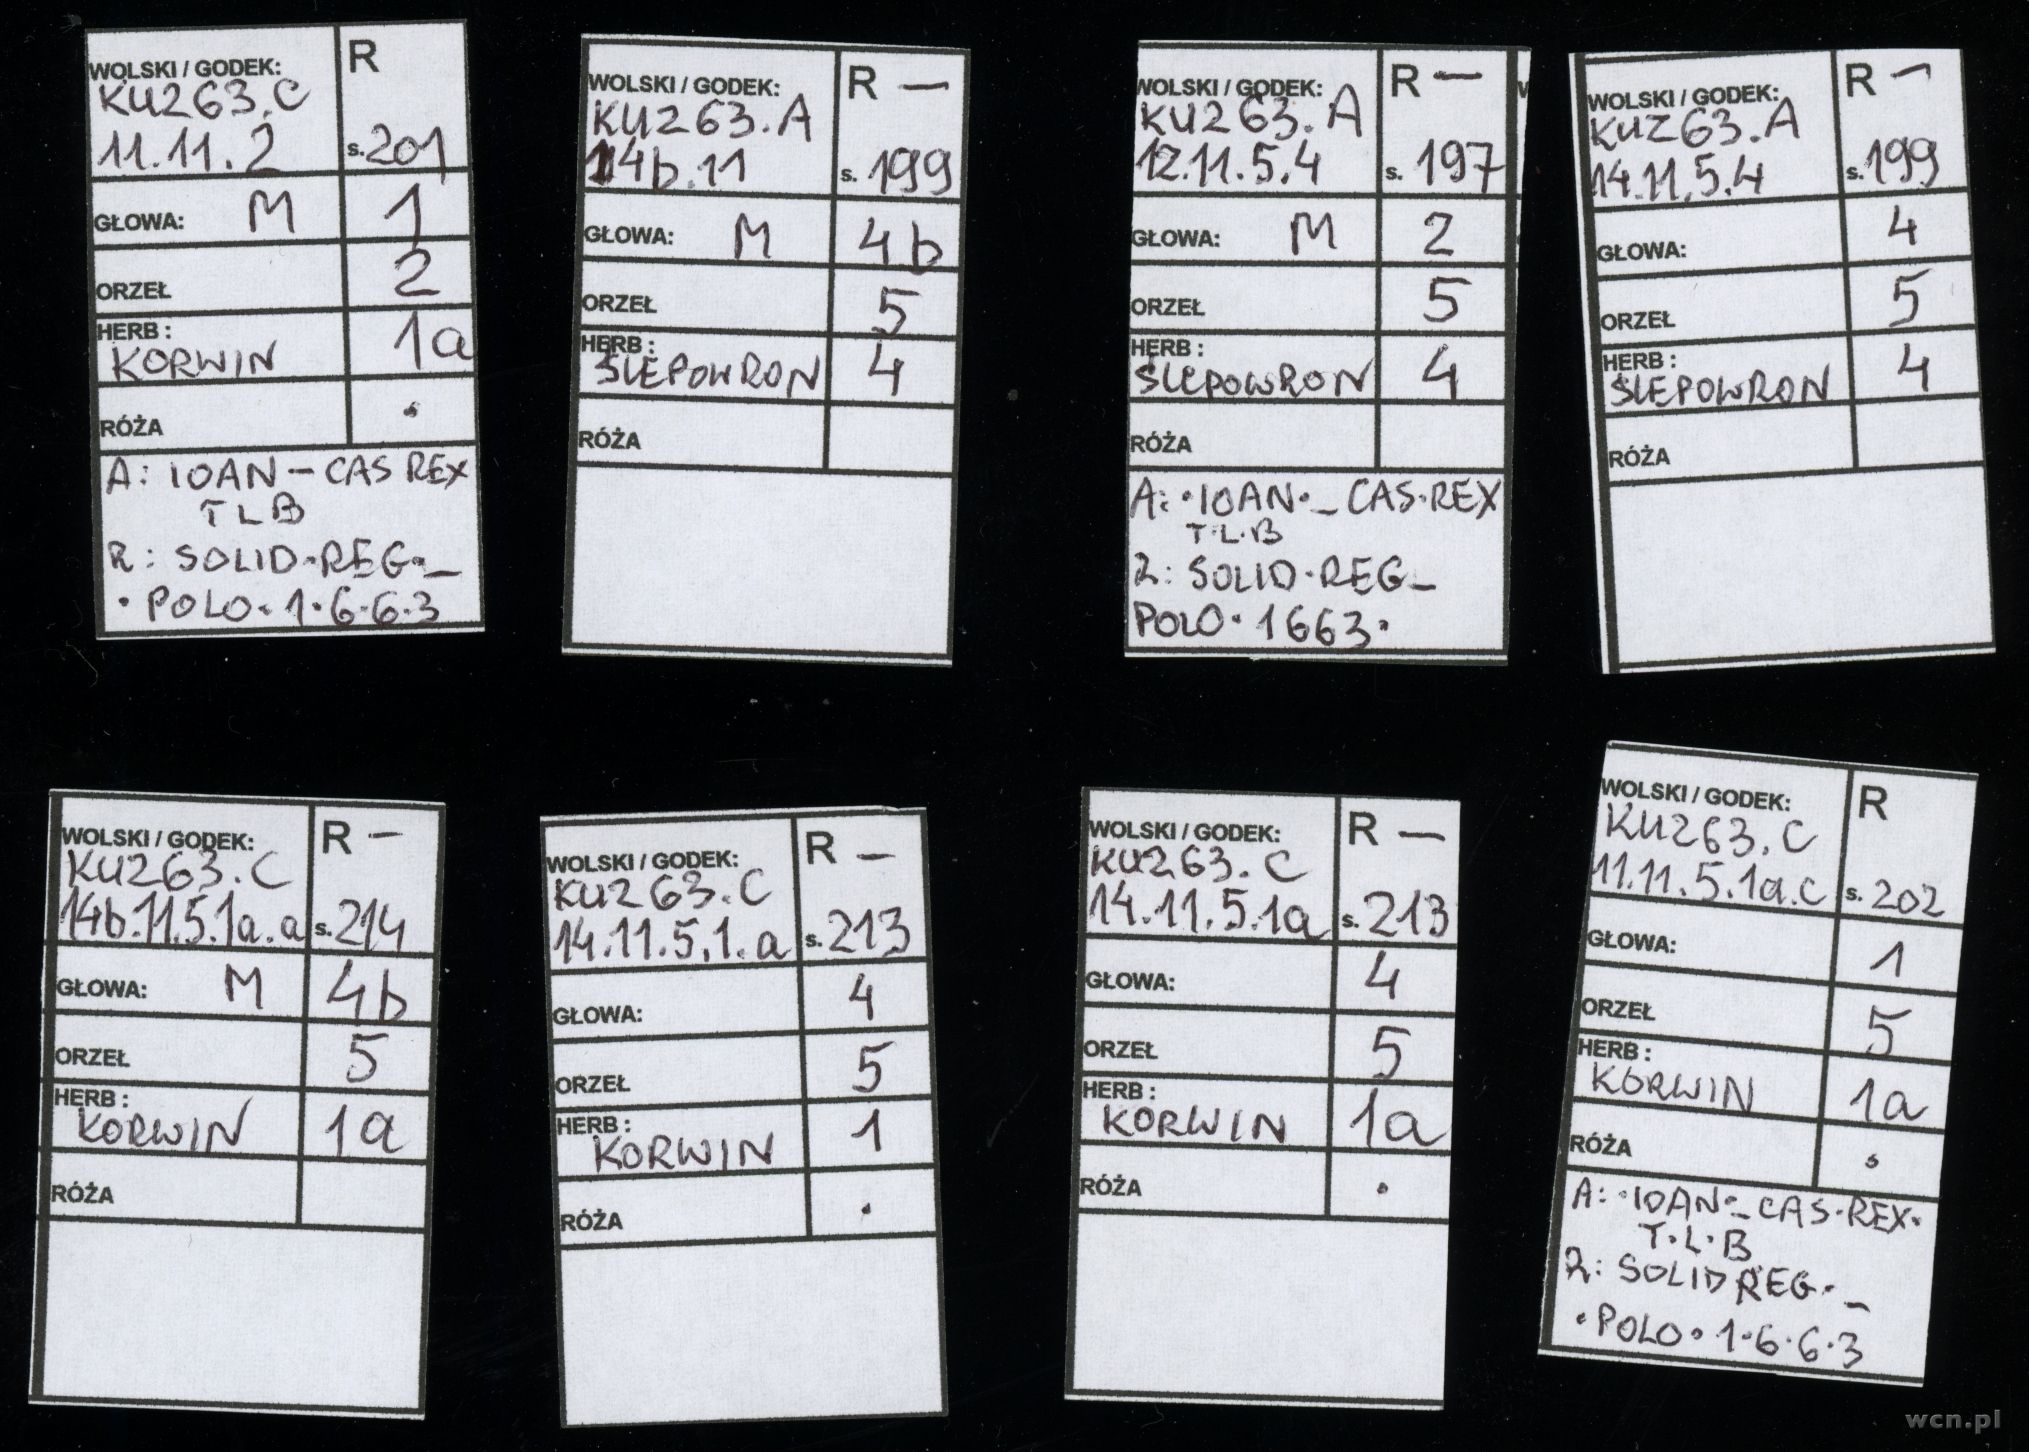 WOLSKI / GODEK: R
KUZ63.C
11.11.2 s.201
GŁOWA: M 1
ORZEŁ 2
HERB: KORWIN 1a
RÓŻA .
A: IOAN – CAS REX
TLB
R: SOLID·REG·_
·POLO·1·6·6·3
WOLSKI / GODEK: R —
KUZ63.A
14b.11 s.199
GŁOWA: M 4b
ORZEŁ 5
HERB: ŚLEPOWRON 4
RÓŻA
WOLSKI / GODEK: R —
KUZ63.A
12.11.5.4 s.197
GŁOWA: M 2
ORZEŁ 5
HERB: ŚLEPOWRON 4
RÓŻA
A: ·IOAN·_ CAS·REX
T·L·B
R: SOLID·REG_
POLO·1663·
WOLSKI / GODEK: R —
KUZ63.A
14.11.5.4 s.199
GŁOWA: 4
ORZEŁ 5
HERB: ŚLEPOWRON 4
RÓŻA
WOLSKI / GODEK: R —
KUZ63.C
14b.11.5.1a.a s.214
GŁOWA: M 4b
ORZEŁ 5
HERB: KORWIN 1a
RÓŻA
WOLSKI / GODEK: R —
KUZ63.C
14.11.5.1.a s.213
GŁOWA: 4
ORZEŁ 5
HERB: KORWIN 1
RÓŻA .
WOLSKI / GODEK: R —
KUZ63.C
14.11.5.1a s.213
GŁOWA: 4
ORZEŁ 5
HERB: KORWIN 1a
RÓŻA .
WOLSKI / GODEK: R
KUZ63.C
11.11.5.1a.c s.202
GŁOWA: 1
ORZEŁ 5
HERB: KORWIN 1a
RÓŻA .
A: ·IOAN·_ CAS·REX·
T·L·B
R: SOLID REG·_
·POLO·1·6·6·3
wcn.pl